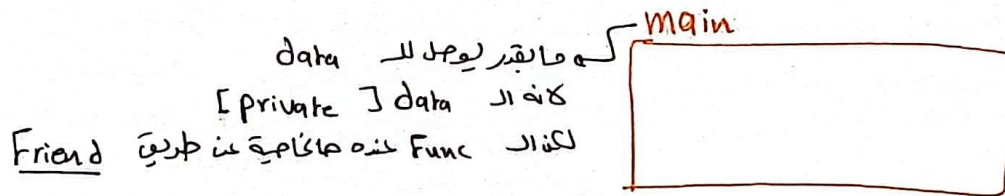 main
ما بقدر يوصل لل data
لانه ال data [private]
لكن ال Func عنده هالخاصية عن طريق Friend